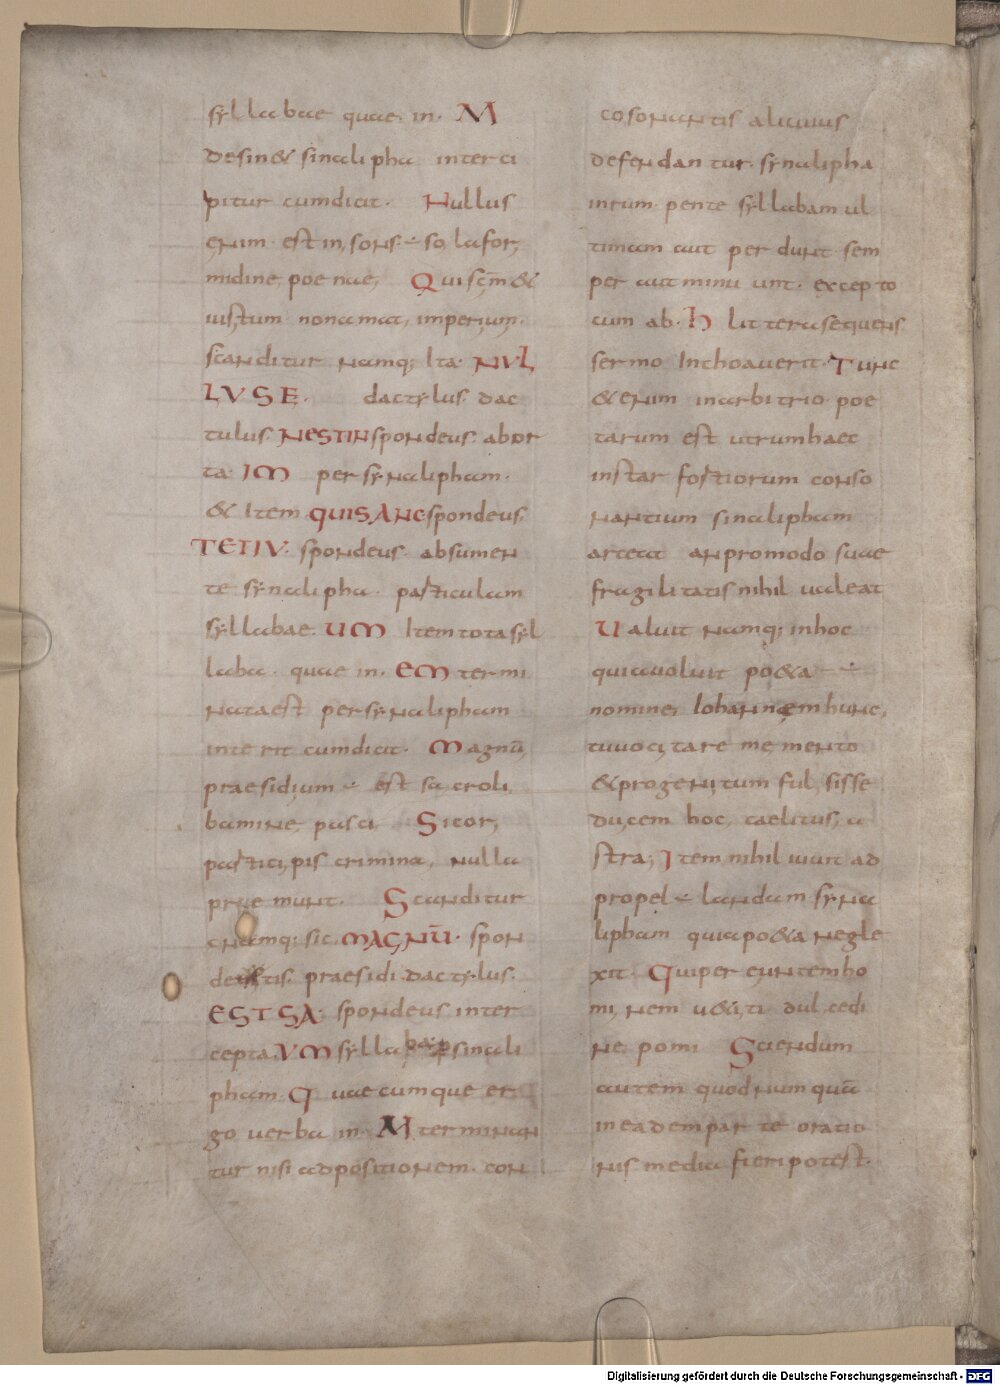 syllabae quae in. M
desin& sinalipha interci
pitur cumdicit. Nullus
enim est in, sons÷ so, lafor,
midine, poenae, Qui scm &
iustum nonamat, imperium.
scanditur namq; Ita. NUL
LUS E. dactylus. dac
tulus. NESTIN spondeus. abor
ta. IM per synalipham.
& Item QUIS ANC spondeus,
TETIU. spondeus. absumen
te synalipha. particulam
syllabae. UM Item tota syl
laba. quae in. EM termi
nata est per synalipham
interit cumdicit. Magnū,
praesidium÷ est sacroli
bamine, pasci, Sicor,
participis crimina, nulla
praemunt. Scanditur
namq; sic. MAGNŪ. spon
praesidi. dactylus.
EST SA. spondeus. inter
cepta. UM sinali
pham. Quaecumque er
go verba in. M terminan
tur nisi adpositionem. con
cosonantis alicuius
defendantur. synalipha
interim pente syllabam ul
timam aut perdunt. sem
per aut minuunt. excepto
cum ab. h littera sequens
sermo Inchoaverit. Tunc
&enim inarbitrio poe
tarum est utrum haec
instar fortiorum conso
nantium sinalipham
arceat an promodo suae
fragilitatis nihil valeat
Valuit namq; inhoc
quia voluit po&a ÷
nomine, Iohannem hunc,
tu vocitare memento
& progenitum fulsisse
ducem hoc, caelitus, a
stra; Item nihil viuit ad
propel÷ landam syna
lipham quia po&a negle
xit. Qui per euntem ho
mi, nem u&iti dulcedi
ne pomi Sciendum
autem quod numquā
in eadem parte oratio
nis media fieri potest.
Digitalisierung gefördert durch die Deutsche Forschungsgemeinschaft - DFG